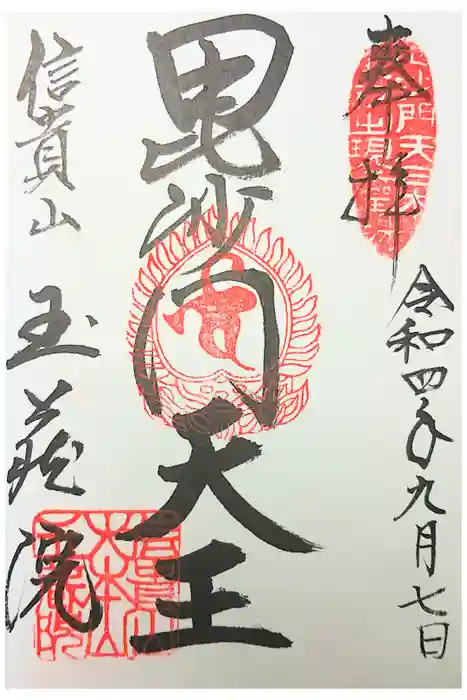 奉拝
令和四年九月七日
毘沙門天王
信貴山
玉蔵院